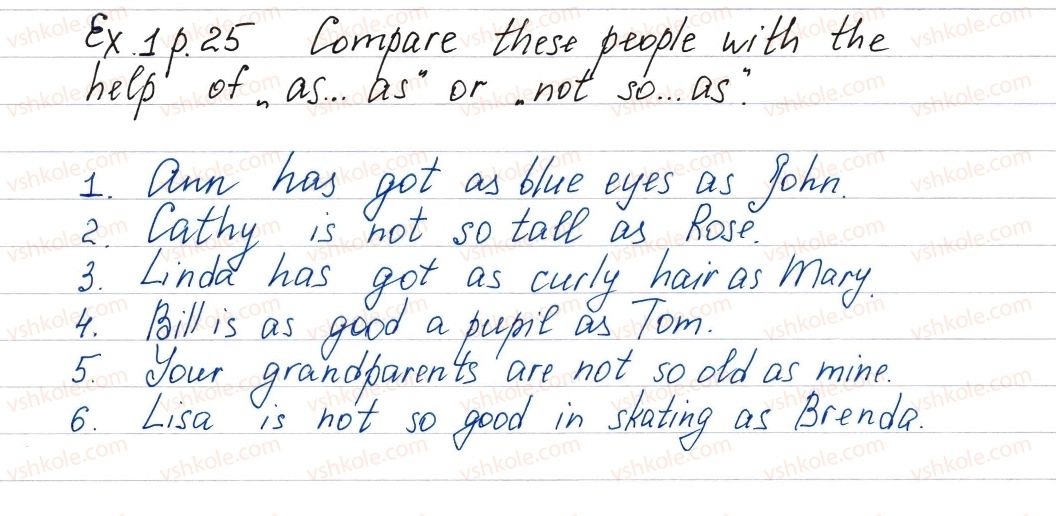 Ex.1 p.25 Compare these people with the
help of „as... as" or „not so... as".
1. Ann has got as blue eyes as John.
2. Cathy is not so tall as Rose.
3. Linda has got as curly hair as Mary.
4. Bill is as good a pupil as Tom.
5. Your grandparents are not so old as mine.
6. Lisa is not so good in skating as Brenda.